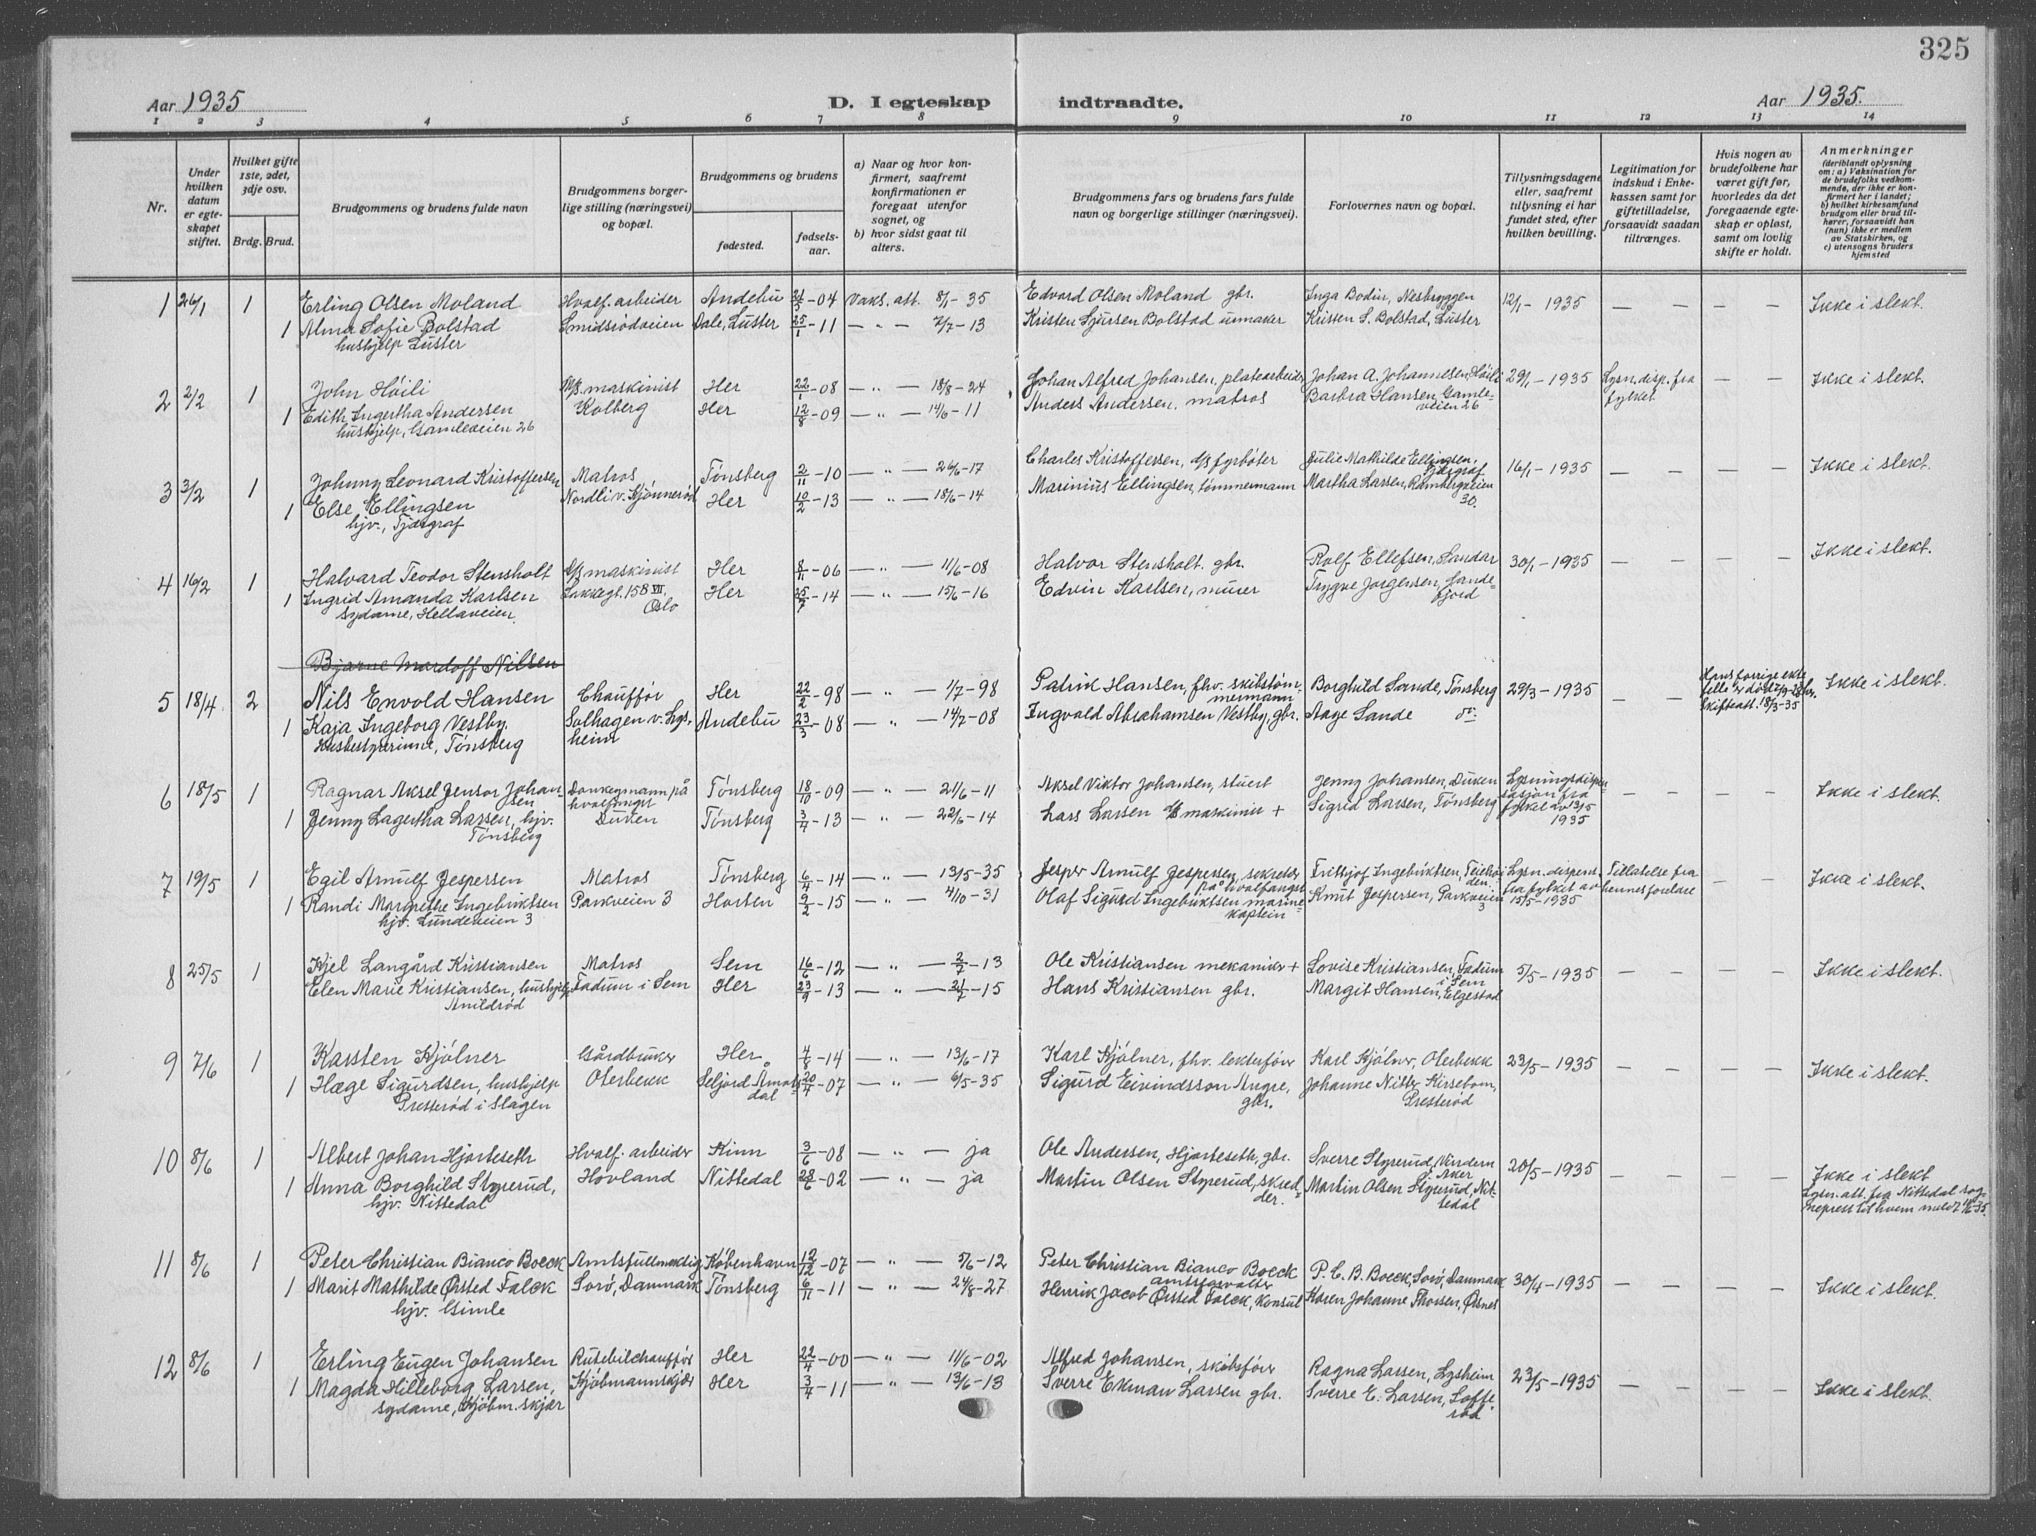 325
Aar 1935
D. I egteskap indtraadte.
Aar 1935.
1 2 3 4 5 6 7 8 9 10 11 12 13 14
Nr.
Under hvilken datum er egteskapet stiftet.
Hvilket gifte 1ste, 2det, 3dje osv.
Brdg. Brud.
Brudgommens og brudens fulde navn
Brudgommens borgerlige stilling (næringsvei) og bopæl.
Brudgommens og brudens
fødested.
fødselsaar.
a) Naar og hvor konfirmert, saafremt konfirmationen er foregaat utenfor sognet, og
b) hvor sidst gaat til alters.
Brudgommens fars og brudens fars fulde navn og borgerlige stillinger (næringsvei).
Forlovernes navn og bopæl.
Tillysningsdagene eller, saafremt tillysning ei har fundet sted, efter hvilken bevilling.
Legitimation for indskud i Enkekassen samt for giftetilladelse, forsaavidt saadan tiltrænges.
Hvis nogen av brudefolkene har været gift før, hvorledes da det foregaaende egteskap er opløst, samt om lovlig skifte er holdt.
Anmerkninger
(deriblandt oplysning om: a) Vaksination for de brudefolks vedkommende, der ikke er konfirmert her i landet; b) hvilket kirkesamfund brudgom eller brud tilhører, forsaavidt han (hun) ikke er medlem av Statskirken, og c) utensogns bruders hjemsted
1 26/1 1 Erling Olsen Moland Hvalf. arbeider Andebu 21/3-04 Vaks. att. 8/1-35 Edvard Olsen Moland gbr. Inga Bodin, Nesbryggen 12/1-1935 — — — Ikke i slekt.
1 Alma Sofie Bolstad Smidsrødveien Dale, Luster 25/1-11 — " — 7/7-13 Kristen Sjursen Bolstad urmaker Kristen S. Bolstad, Luster
hushjelp Luster
2 2/2 1 John Höili maskinist Her 22/1-08 — " — 18/8-24 Johan Alfred Johansen, platearbeider Johan A. Johannesen, Höili 29/1-1935 Lysn. disp. fra — — Ikke i slekt.
1 Edith Ingertha Andersen Kolberg Her 12/8-09 — " — 14/6-11 Anders Andersen. matros Barbra Hansen, Gamle- fylket
hushjelp, Gamleveien 26 veien 26
3 3/2 1 Johnny Leonard Kristoffersen Matros Tønsberg 2/11-10 — " — 26/6-17 Charles Kristoffersen, d/s fyrbøter Julie Mathilde Ellingsen, 16/1-1935 — — — Ikke i slekt.
1 Else Ellingsen Nordli v. Kjønnerød Her 10/2-13 — " — 18/6-14 Marinius Ellingsen, tømmermann Martha Larsen, Rambergveien
hjv., Tjøsgraf 30.
4 16/2 1 Halvard Teodor Stensholt d/s maskinist Her 8/11-06 — " — 11/6-08 Halvor Stensholt. gbr. Rolf Ellefsen, Sandar 30/1-1935 — — — — Ikke i slekt.
1 Ingrid Amanda Karlsen 158 VII. Her 25/7-14 — " — 15/6-16 Edvin Karlsen, murer Trygve Jørgensen, Sande-
sydame, Hellaveien. Oslo fjord
Bjarne Mardoff Nilsen
5 18/4 2 Nils Envold Hansen Chauffør Her 22/2-98 — " — 1/7-98 Patrik Hansen, fhv. skibstøm- Borghild Sande, Tønsberg 29/3-1935 — — Hans forrige ekte- Ikke i slekt.
1 Kaja Ingeborg Vestby, Solhagen v. Lys- Andebu 23/3-08 — " — 14/7-08 mermann Ingvald Abrahamsen Vestby, gbr. Aage Sande do. Skifteatt. 18/3-35
Husbestyrerinne, Tønsberg heim
6 18/5 1 Ragnar Aksel Jensor Johan- Donkeymann på Tønsberg 18/10-09 — " — 21/6-11 Aksel Viktor Johansen, stuert Jenny Johansen, Duken Lysningsdispen- — — — Ikke i slekt.
sen hvalfanger sasjon fra
1 Jenny Lagertha Larsen, hjv. Duken Tønsberg 3/4-13 — " — 22/6-14 Lars Larsen maskinist + Sigrid Larsen, Tønsberg fylket av 13/5
Tønsberg 1935
7 19/5 1 Egil Arnulf Jespersen Matros Tønsberg 6/4-14 — " — 13/5-35 Jesper Arnulf Jespersen, sekretær Frithjof Ingebriktsen, Teiehøi- Lysn. dispens. Tillatelse fra — — Ikke i slekt.
på hvalfangst den fra fylket av hennes foreldre
1 Randi Margrethe Ingebriktsen Parkveien 3 Horten 9/2-15 — " — 4/10-31 Olaf Sigurd Ingebriktsen marine- Knut Jespersen, Parkveien 15/5-1935
hjv. Lundeveien 3 kaptein 3
8 25/5 1 Kjel Langård Kristiansen Matros Sem 16/6-12 — " — 2/7-13 Ole Kristiansen mekaniker + Lovise Kristiansen, Fadum 5/5-1935 — — — Ikke i slekt.
1 Elen Marie Kristiansen, hushjelp Fadum i Sem Her 23/9-13 — " — 21/7-15 Hans Kristiansen gbr. i Sem Margit Hansen, Elgestad
Anildrød
9 7/6 1 Karsten Kjølner Gårdbruker Her 4/8-14 — " — 13/6-17 Karl Kjølner, fhv. lekterfører Karl Kjølner, Oterbekk 23/5-1935 — — — Ikke i slekt.
1 Hæge Sigurdsen, hushjelp Oterbekk Seljord, Åmots- 20/4-07 — " — 6/5-35 Sigurd Eivindsson Angre, Johanne Nitter Kirsebom,
Presterød i Slagen dal gbr. Presterød
10 8/6 1 Albert Johan Hjorteseth Hvalf. arbeider Kinn 3/6-08 — " — ja Ole Andersen, Hjorteseth, gbr. Sverre Styrerud, Vindern 20/5-1935 — — — Ikke i slekt
1 Anna Borghild Styrerud, Hovland Nittedal 28/6-02 — " — ja Martin Olsen Styrerud, skred- i Aker Martin Olsen Styrerud, Nit- Lysn. att. fra Nittedal sog-
hjv. Nittedal der. tedal neprest til hvem meldt
11 8/6 1 Peter Christian Bianco Boeck Amtsfullmektig København 12/12-07 — " — 5/6-12 Peter Christian Bianco Boeck P. C. B. Boeck, Sorø, Danmark 30/4-1935 — — — Ikke i slekt.
amtsforvalter
1 Marit Mathilde Ørsted Falck Sorø, Danmark Tønsberg 6/11-11 — " — 24/8-27 Henrik Jacob Ørsted Falck, konsul Karen Johanne Thorsen, Ørsnes
hjv. Gimle
12 8/6 1 Erling Eugen Johansen Rutebilchauffør Her 22/4-00 — " — 11/6-02 Alfred Johansen, skibsfører Ragna Larsen, Lysheim 23/5-1935 — — — Ikke i slekt.
1 Magda Hilleborg Larsen, Kjøbmannskjær Her 3/4-11 — " — 13/6-13 Sverre Ekman Larsen gbr. Sverre E. Larsen, Lofte-
sydame, Kjøbm. skjær rød